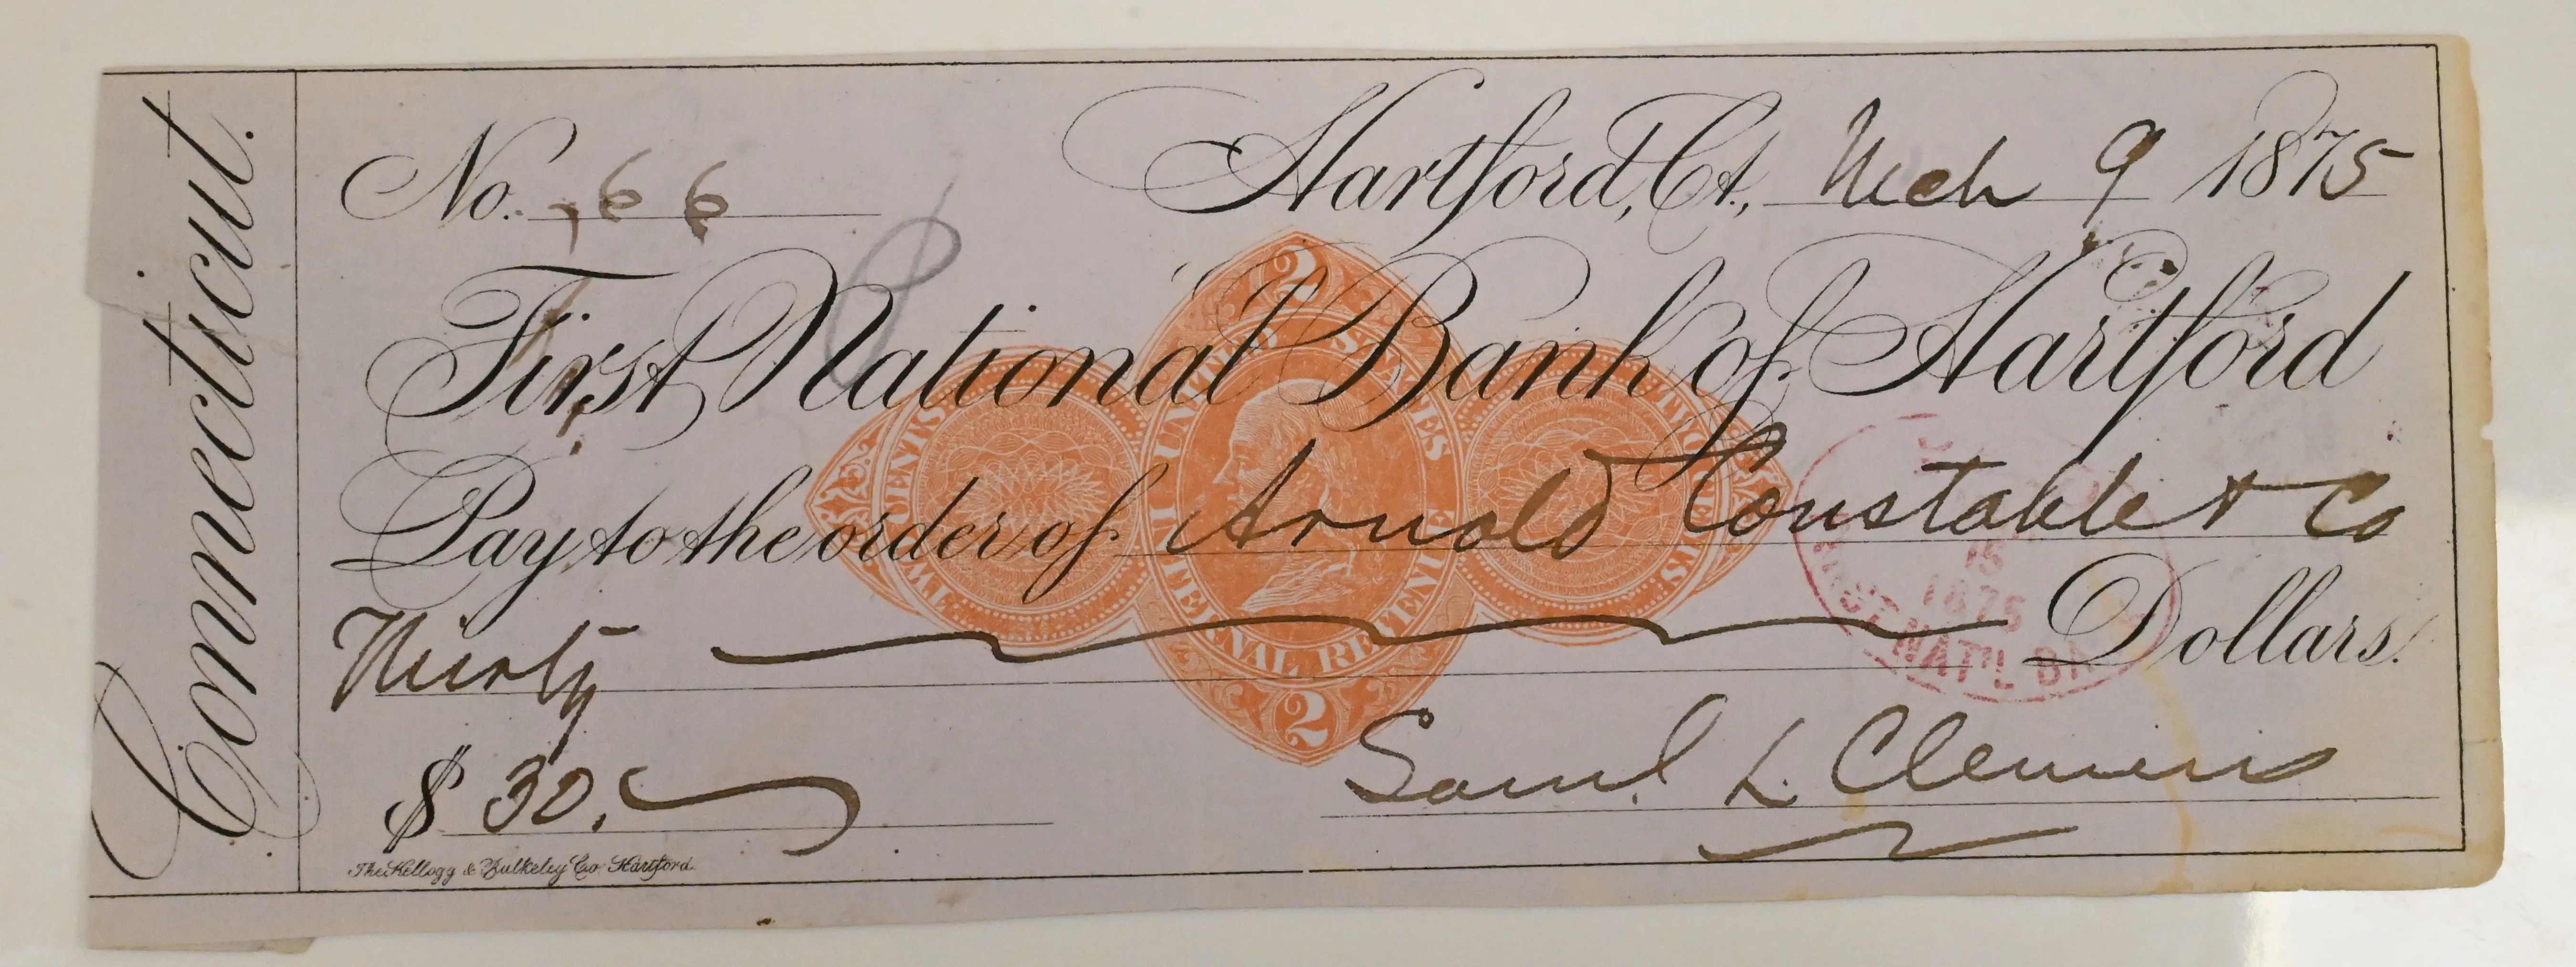 Connecticut.
No. 66
Hartford, Ct., Mch 9 1875
First National Bank of Hartford
Pay to the order of Arnold Constable & Co
Thirty Dollars.
$ 30.
Saml. L. Clemens
The Kellogg & Bulkeley Co. Hartford.
2
UNITED STATES
INTERNAL REVENUE
2
TWO CENTS
TWO CENTS
15
1875
FIRST NAT'L BA